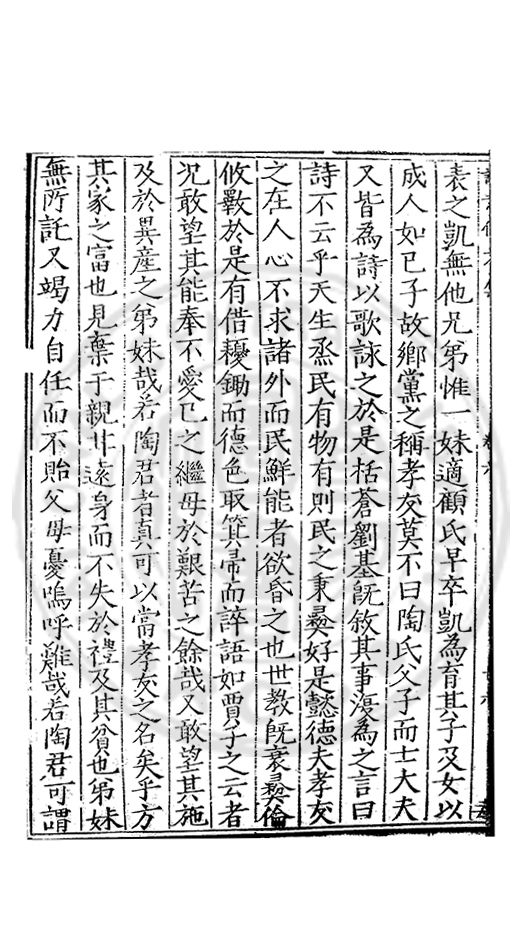 表之凱無他兄弟惟一妹適顧氏早卒凱為育其子及女以
成人如已子故鄉黨之稱孝友莫不曰陶氏父子而士大夫
又皆為詩以歌詠之於是栝蒼劉基既敘其事復為之言曰
詩不云乎天生烝民有物有則民之秉彝好是懿德夫孝友
之在人心不求諸外而民鮮能者欲昏之也世教既衰彝倫
攸斁於是有借耰鋤而德色取箕帚而誶語如賈子之云者
況敢望其能奉不愛已之繼母於艱苦之餘哉又敢望其施
及於異産之弟妹哉若陶君者真可以當孝友之名矣乎方
其家之富也見棄于親非遠身而不失於禮及其貧也弟妹
無所託又竭力自任而不貽父母憂嗚呼難哉若陶君可謂